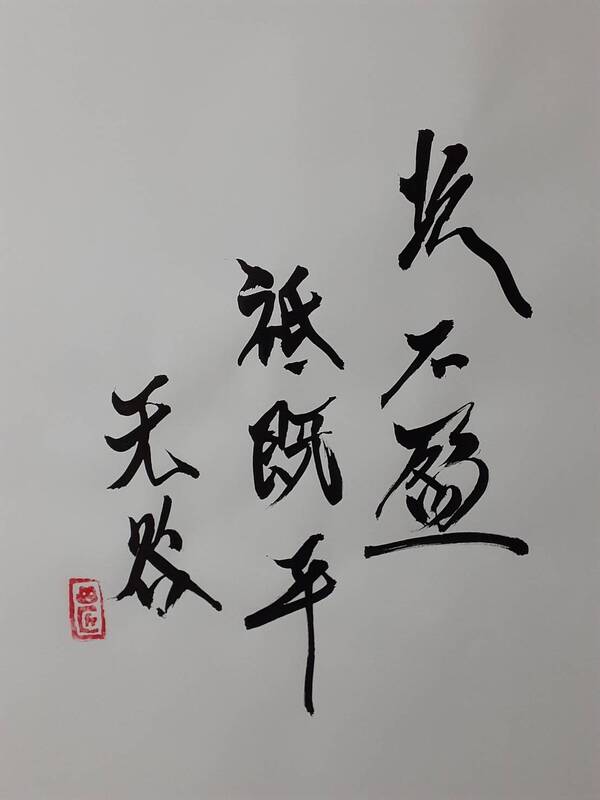 坎不盈
祗既平
无咎